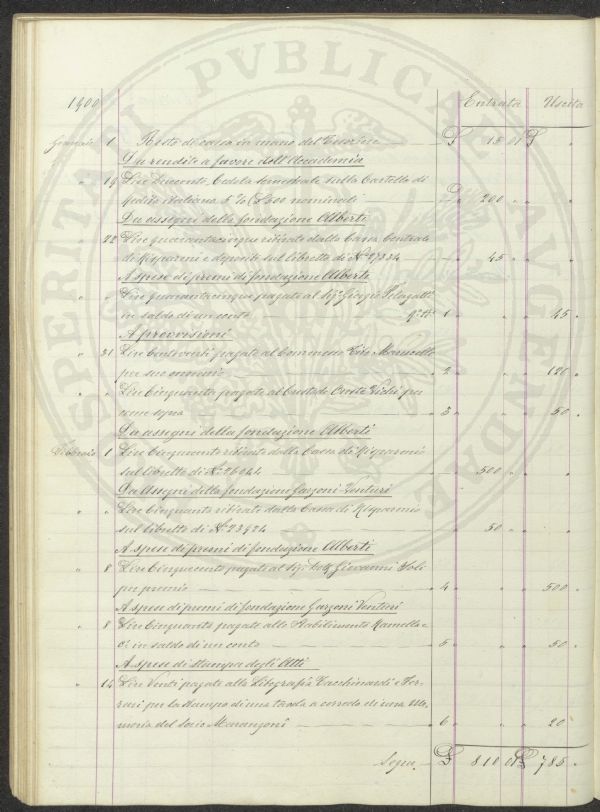 PROSPERITATI PVBLICAE AVGENDAE
1900 Entrata Uscita
Gennaio 1 Resto di cassa in mano del Tesoriere £ 15 01 £ "
Da rendite a favore dell'Accademia
" 19 Lire Duecento, Cedola semestrale sulla Cartella di
Credito italiano 5 % nominale 200 " "
Da assegni della fondazione Alberti
" 22 Lire quarantacinque ritirate dalla Cassa Centrale
di Risparmi e depositi sul libretto di N° 45 " "
A spese di premi di fondazione Alberti
" " Lire quarantacinque pagate al Sig. Giorgio
in saldo di un conto N° 1 " " 45 "
A provvisioni
" 31 Lire Centoventi pagate al Commesso
per suo onorario " 2 " " 120 "
" " Lire Cinquanta pagate al Custode Oreste per
come sopra " 3 " " 50 "
Da assegni della fondazione Alberti
Febbraio 1 Lire Cinquecento ritirate dalla Cassa di Risparmio
sul libretto di N° 500 " "
Da Assegni della fondazione Garzoni Venturi
" " Lire Cinquanta ritirate dalla Cassa di Risparmio
sul libretto di N° 23924 50 " "
A spese di premi di fondazione Alberti
" 8 Lire Cinquecento pagate al Sig. Dott. Giovanni
per premio " 4 " " 500 "
A spese di premi di fondazione Garzoni Venturi
" 8 Lire Cinquanta pagate allo Stabilimento
C. in saldo di un conto " 5 " " 50 "
A spese di stampa degli Atti
" 14 Lire Venti pagate alla Litografia Tacchinardi e Fer-
rari per la stampa di una tavola a corredo di una Me-
moria del Socio Marangoni " 6 " " 20 "
Segue £ 810 01 £ 785 "